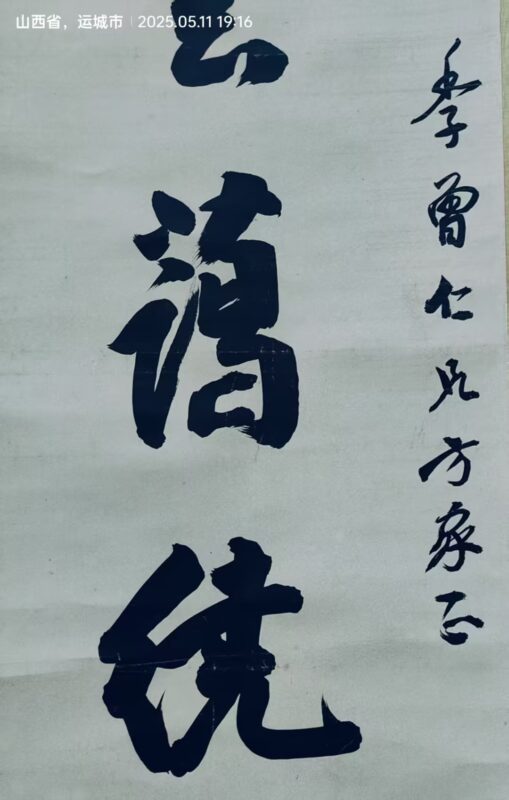 山西省，运城市 | 2025.05.11 19:16
季曾仁兄方家正
藹繞